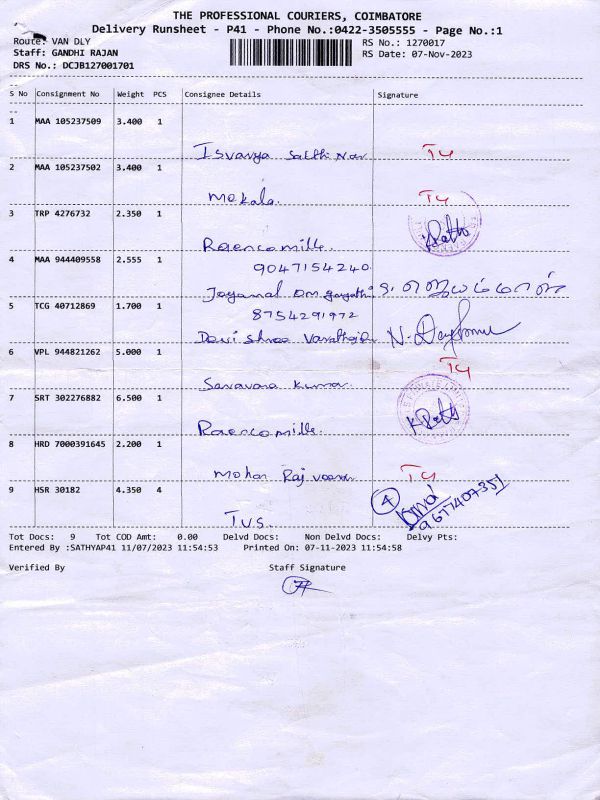 THE PROFESSIONAL COURIERS, COIMBATORE
Delivery Runsheet - P41 - Phone No.:0422-3505555 - Page No.:1
Route: VAN DLY
RS No.: 1270017
Staff: GANDHI RAJAN
RS Date: 07-Nov-2023
DRS No.: DCJB127001701
S No Consignment No Weight PCS Consignee Details Signature
1 MAA 105237509 3.400 1
Isvarya Sakthi Nar T4
2 MAA 105237502 3.400 1
Mekala. T4
3 TRP 4276732 2.350 1
Raenco mills.
4 MAA 944409558 2.555 1
9047154240
Jayamal Om gayathi
5 TCG 40712869 1.700 1
8754291972
Devi Shree
6 VPL 944821262 5.000 1
T4
Saravana Kumar.
7 SRT 302276882 6.500 1
Raenco mills.
8 HRD 7000391645 2.200 1
Mohan Raj T4
9 HSR 30182 4.350 4
4
9677407351
TVS.
Tot Docs: 9 Tot COD Amt: 0.00 Delvd Docs: Non Delvd Docs: Delvy Pts:
Entered By :SATHYAP41 11/07/2023 11:54:53 Printed On: 07-11-2023 11:54:58
Verified By Staff Signature